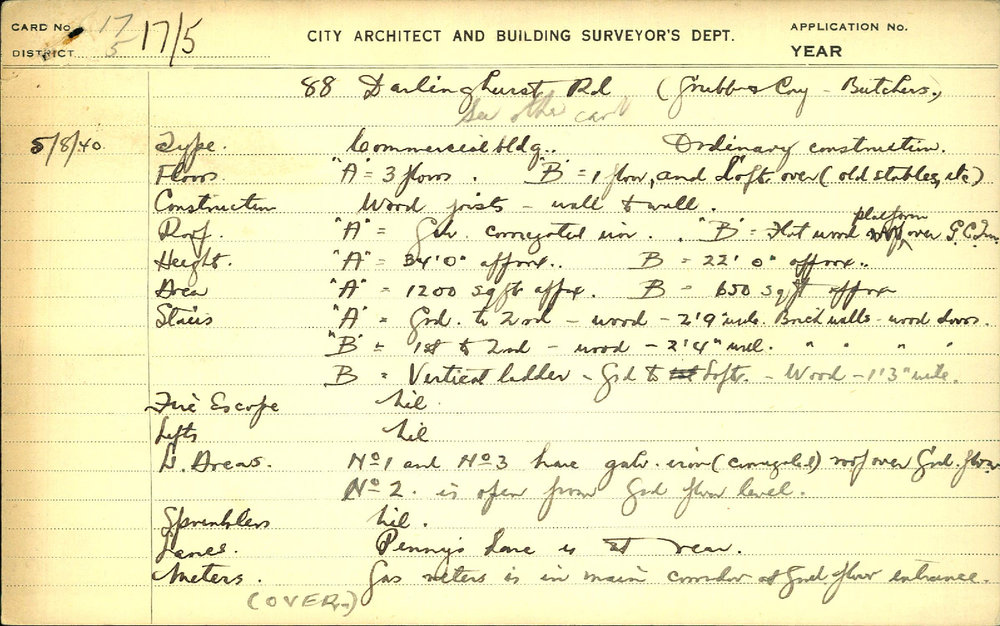 CARD No. 17/5 17/5 CITY ARCHITECT AND BUILDING SURVEYOR'S DEPT. APPLICATION No.
DISTRICT YEAR
88 Darlinghurst Rd (Grubb & Coy - Butchers.)
See other card
5/8/40 Type. Commercial bldg.. Ordinary construction.
Floors "A" = 3 floors. "B" = 1 floor, and Loft over (old stables, etc)
Construction Wood joists - wall to wall.
Roof. "A" = Galv. corrugated iron. . "B" = Flat wood platform over G.C.Iron
Height. "A" = 34'0" approx.. B = 22'0" approx..
Area "A" = 1200 sq ft appx. B = 650 sq ft approx
Stairs "A" = Grd. to 2nd - wood - 2'9" wide. Brick walls - wood doors.
"B" = 1st to 2nd - wood - 2'4" wide. " " " "
B = Vertical ladder - Grd to Loft. - Wood - 1'3" wide.
Fire Escape Nil.
Lifts Nil
L. Areas. No 1 and No 3 have galv. iron (corrugated) roof over Grd. floor
No 2. is open from Grd floor level.
Sprinklers Nil.
Lanes. Penny's Lane is at rear.
Meters. Gas meters is in main corridor at Grd. floor entrance.
(OVER.)